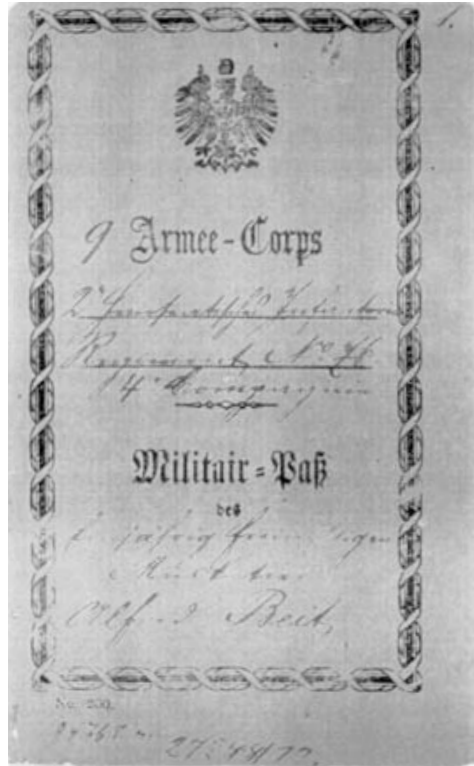 1.
9 Armee-Corps
2. Hanseatisches Infanterie
Regiment No 76.
4 Compagnie
Militair-Paß
des
Einjährig Freiwilligen
Alfred Beit,
No. 200.